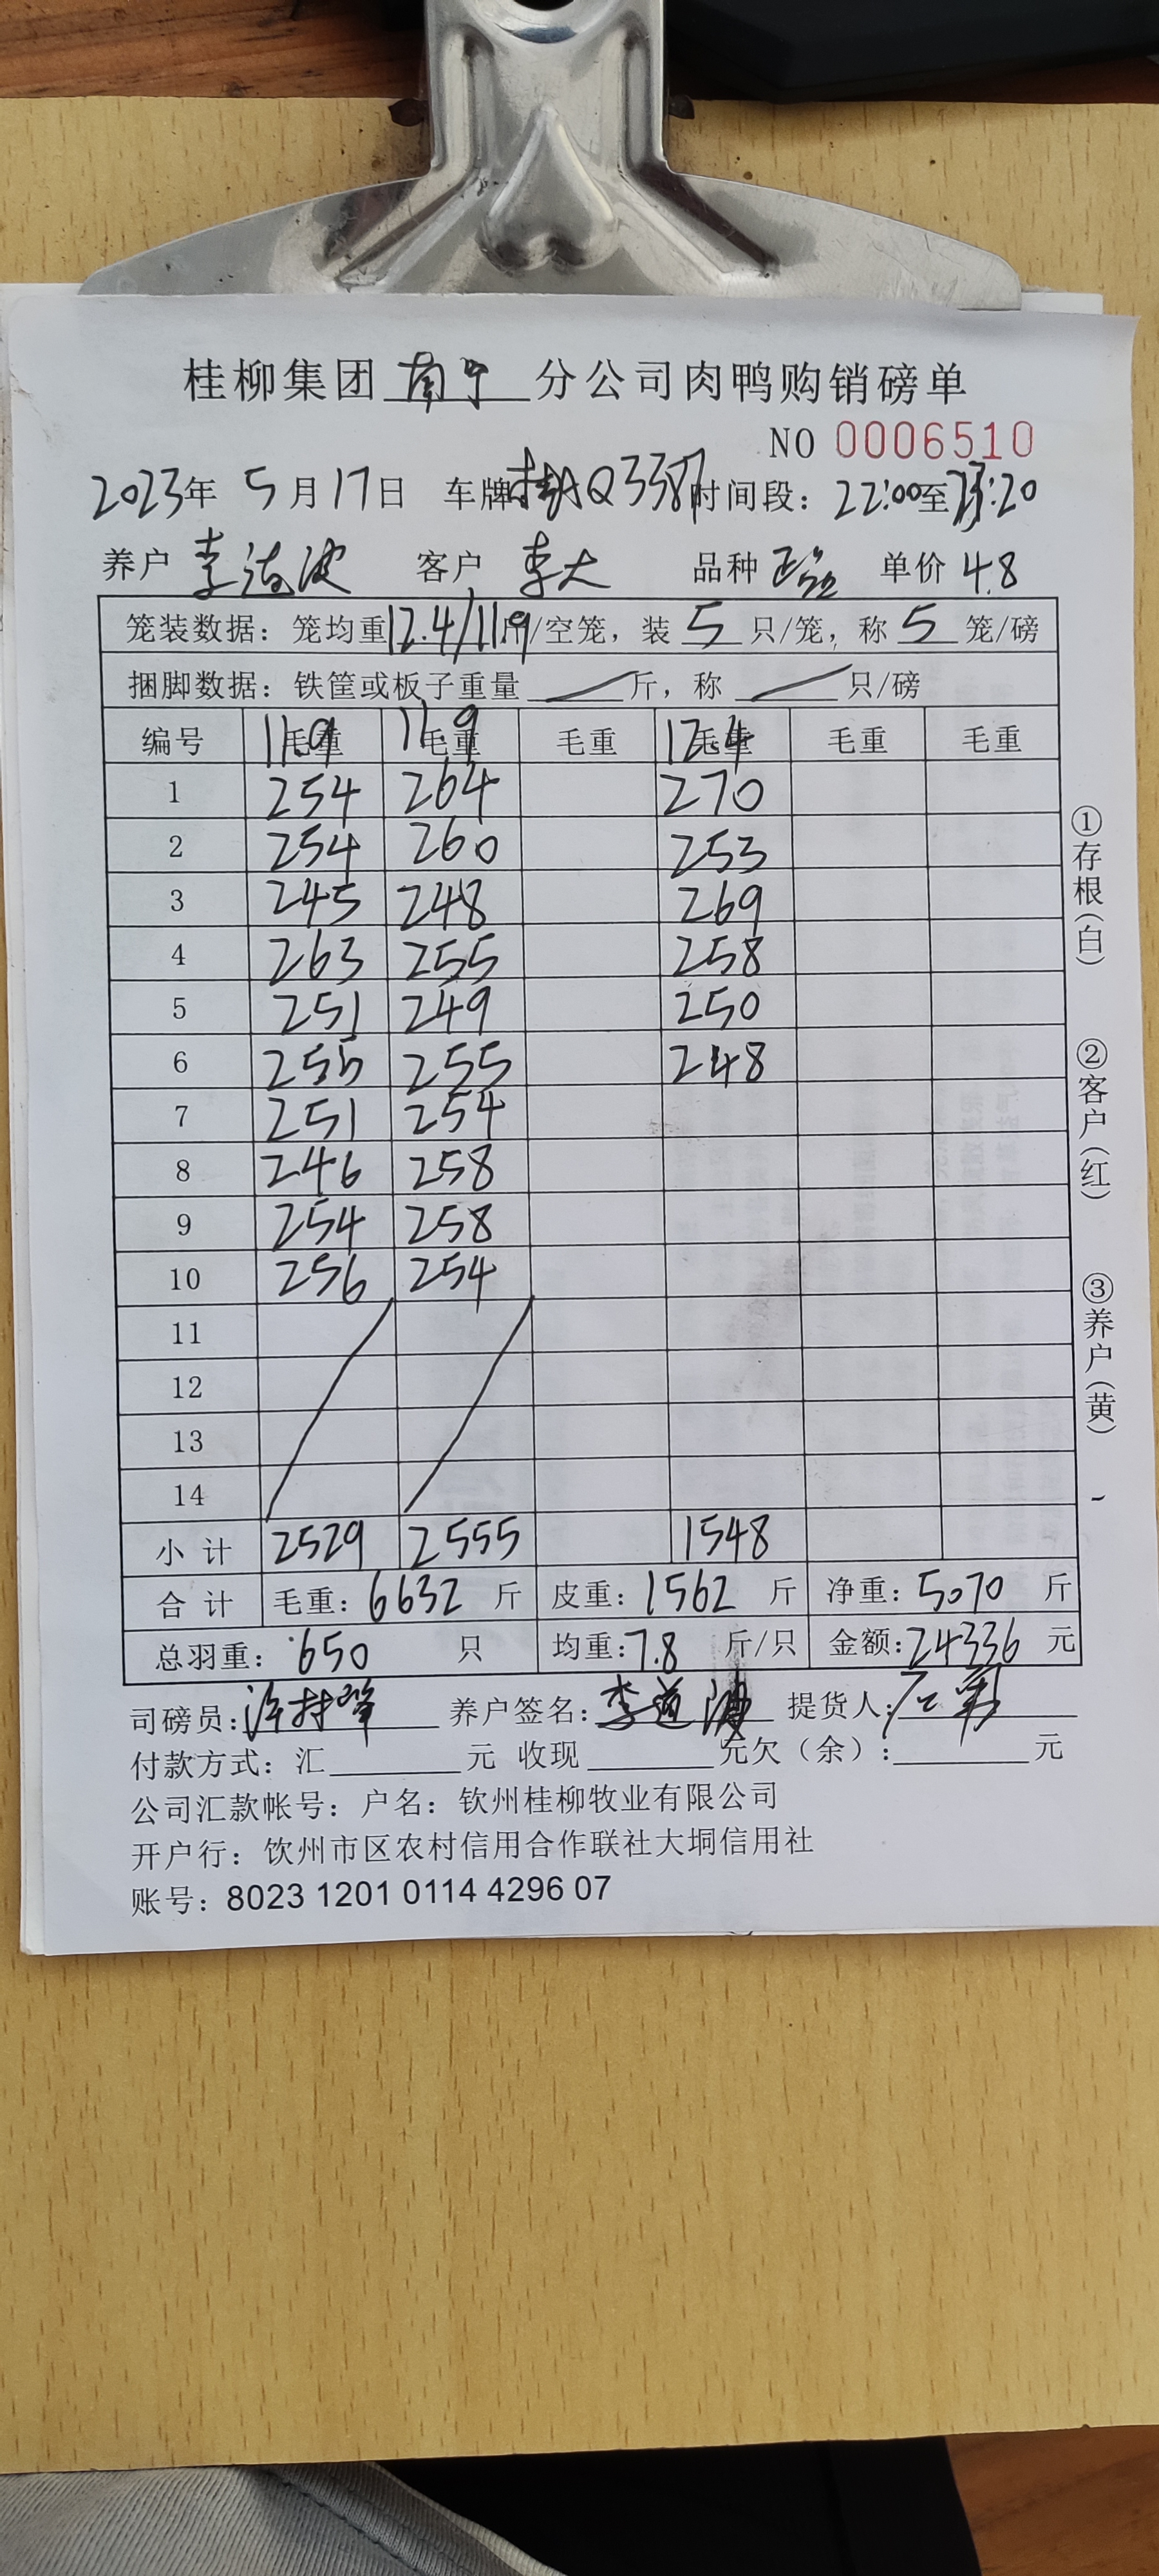 桂柳集团南宁分公司肉鸭购销磅单
NO 0006510
2023年 5月17日 车牌桂AQ3387 时间段：22:00至23:20
养户 李道波 客户 李大 品种 单价 4.8
笼装数据：笼均重12.4/11.9斤/空笼，装 5 只/笼，称 5 笼/磅
捆脚数据：铁筐或板子重量 斤，称 只/磅
编号 11.9毛重 11.9毛重 毛重 12.4毛重 毛重 毛重
1 254 264 270
2 254 260 253
3 245 248 269
4 263 255 258
5 251 249 250
6 255 255 248
7 251 254
8 246 258
9 254 258
10 256 254
11
12
13
14
小计 2529 2555 1548
合计 毛重：6632 斤 皮重：1562 斤 净重：5070 斤
总羽重：650 只 均重：7.8 斤/只 金额：24336 元
司磅员： 养户签名：李道波 提货人：
付款方式：汇 元 收现 元欠（余）： 元
公司汇款帐号：户名：钦州桂柳牧业有限公司
开户行：饮州市区农村信用合作联社大垌信用社
账号：8023 1201 0114 4296 07
①存根（白）
②客户（红）
③养户（黄）